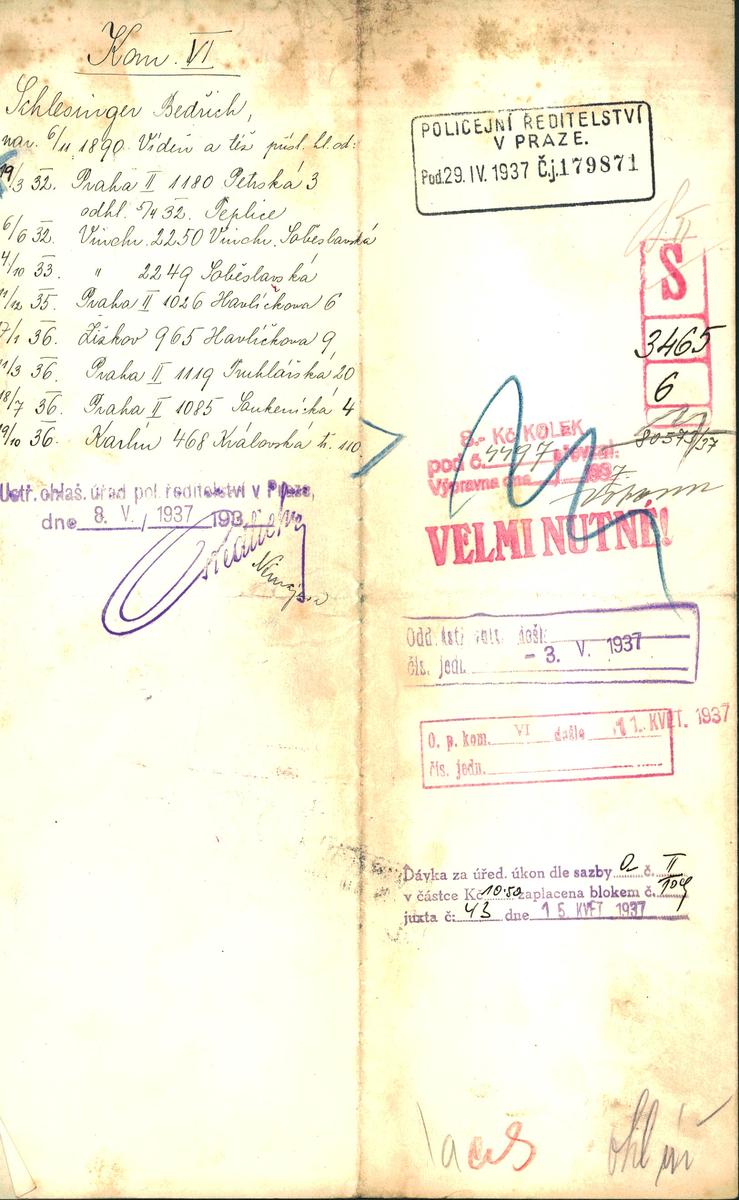 Kom. VI
Schlesinger Bedřich,
nar. 6/11 1890. Vídeň a též přísl. hl. od:
19/3 32. Praha II 1180 Petrská 3
odhl. 5/4 32. Teplice
6/6 32. Vinohr. 2250 Vinohr. Soběslavská
4/10 33. " 2249 Soběslavská
11/12 35. Praha II 1026 Havlíčkova 6
17/1 36. Žižkov 965 Havlíčkova 9,
11/3 36. Praha II 1119 Truhlářská 20
18/7 36. Praha II 1085 Soukenická 4
19/10 36. Karlín 468 Královská tř. 110.
Ústř. ohlaš. úřad pol. ředitelství v Praze,
dne 8. V. 1937 193
POLICEJNÍ ŘEDITELSTVÍ
V PRAZE.
Pod. 29. IV. 1937 Čj. 179871
S
3465
6
80573/37
8.- Kč KOLEK
pod č. 4497 převzal:
Výpravna dne 1937
VELMI NUTNÉ!
došlo
- 3. V. 1937
čís. jedn.
O. p. kom. VI došlo 11. KVĚT. 1937
čís. jedn.
Dávka za úřed. úkon dle sazby č. II
v částce Kč 10.50 zaplacena blokem č. 104
juxta č: 43 dne 15. KVĚT. 1937